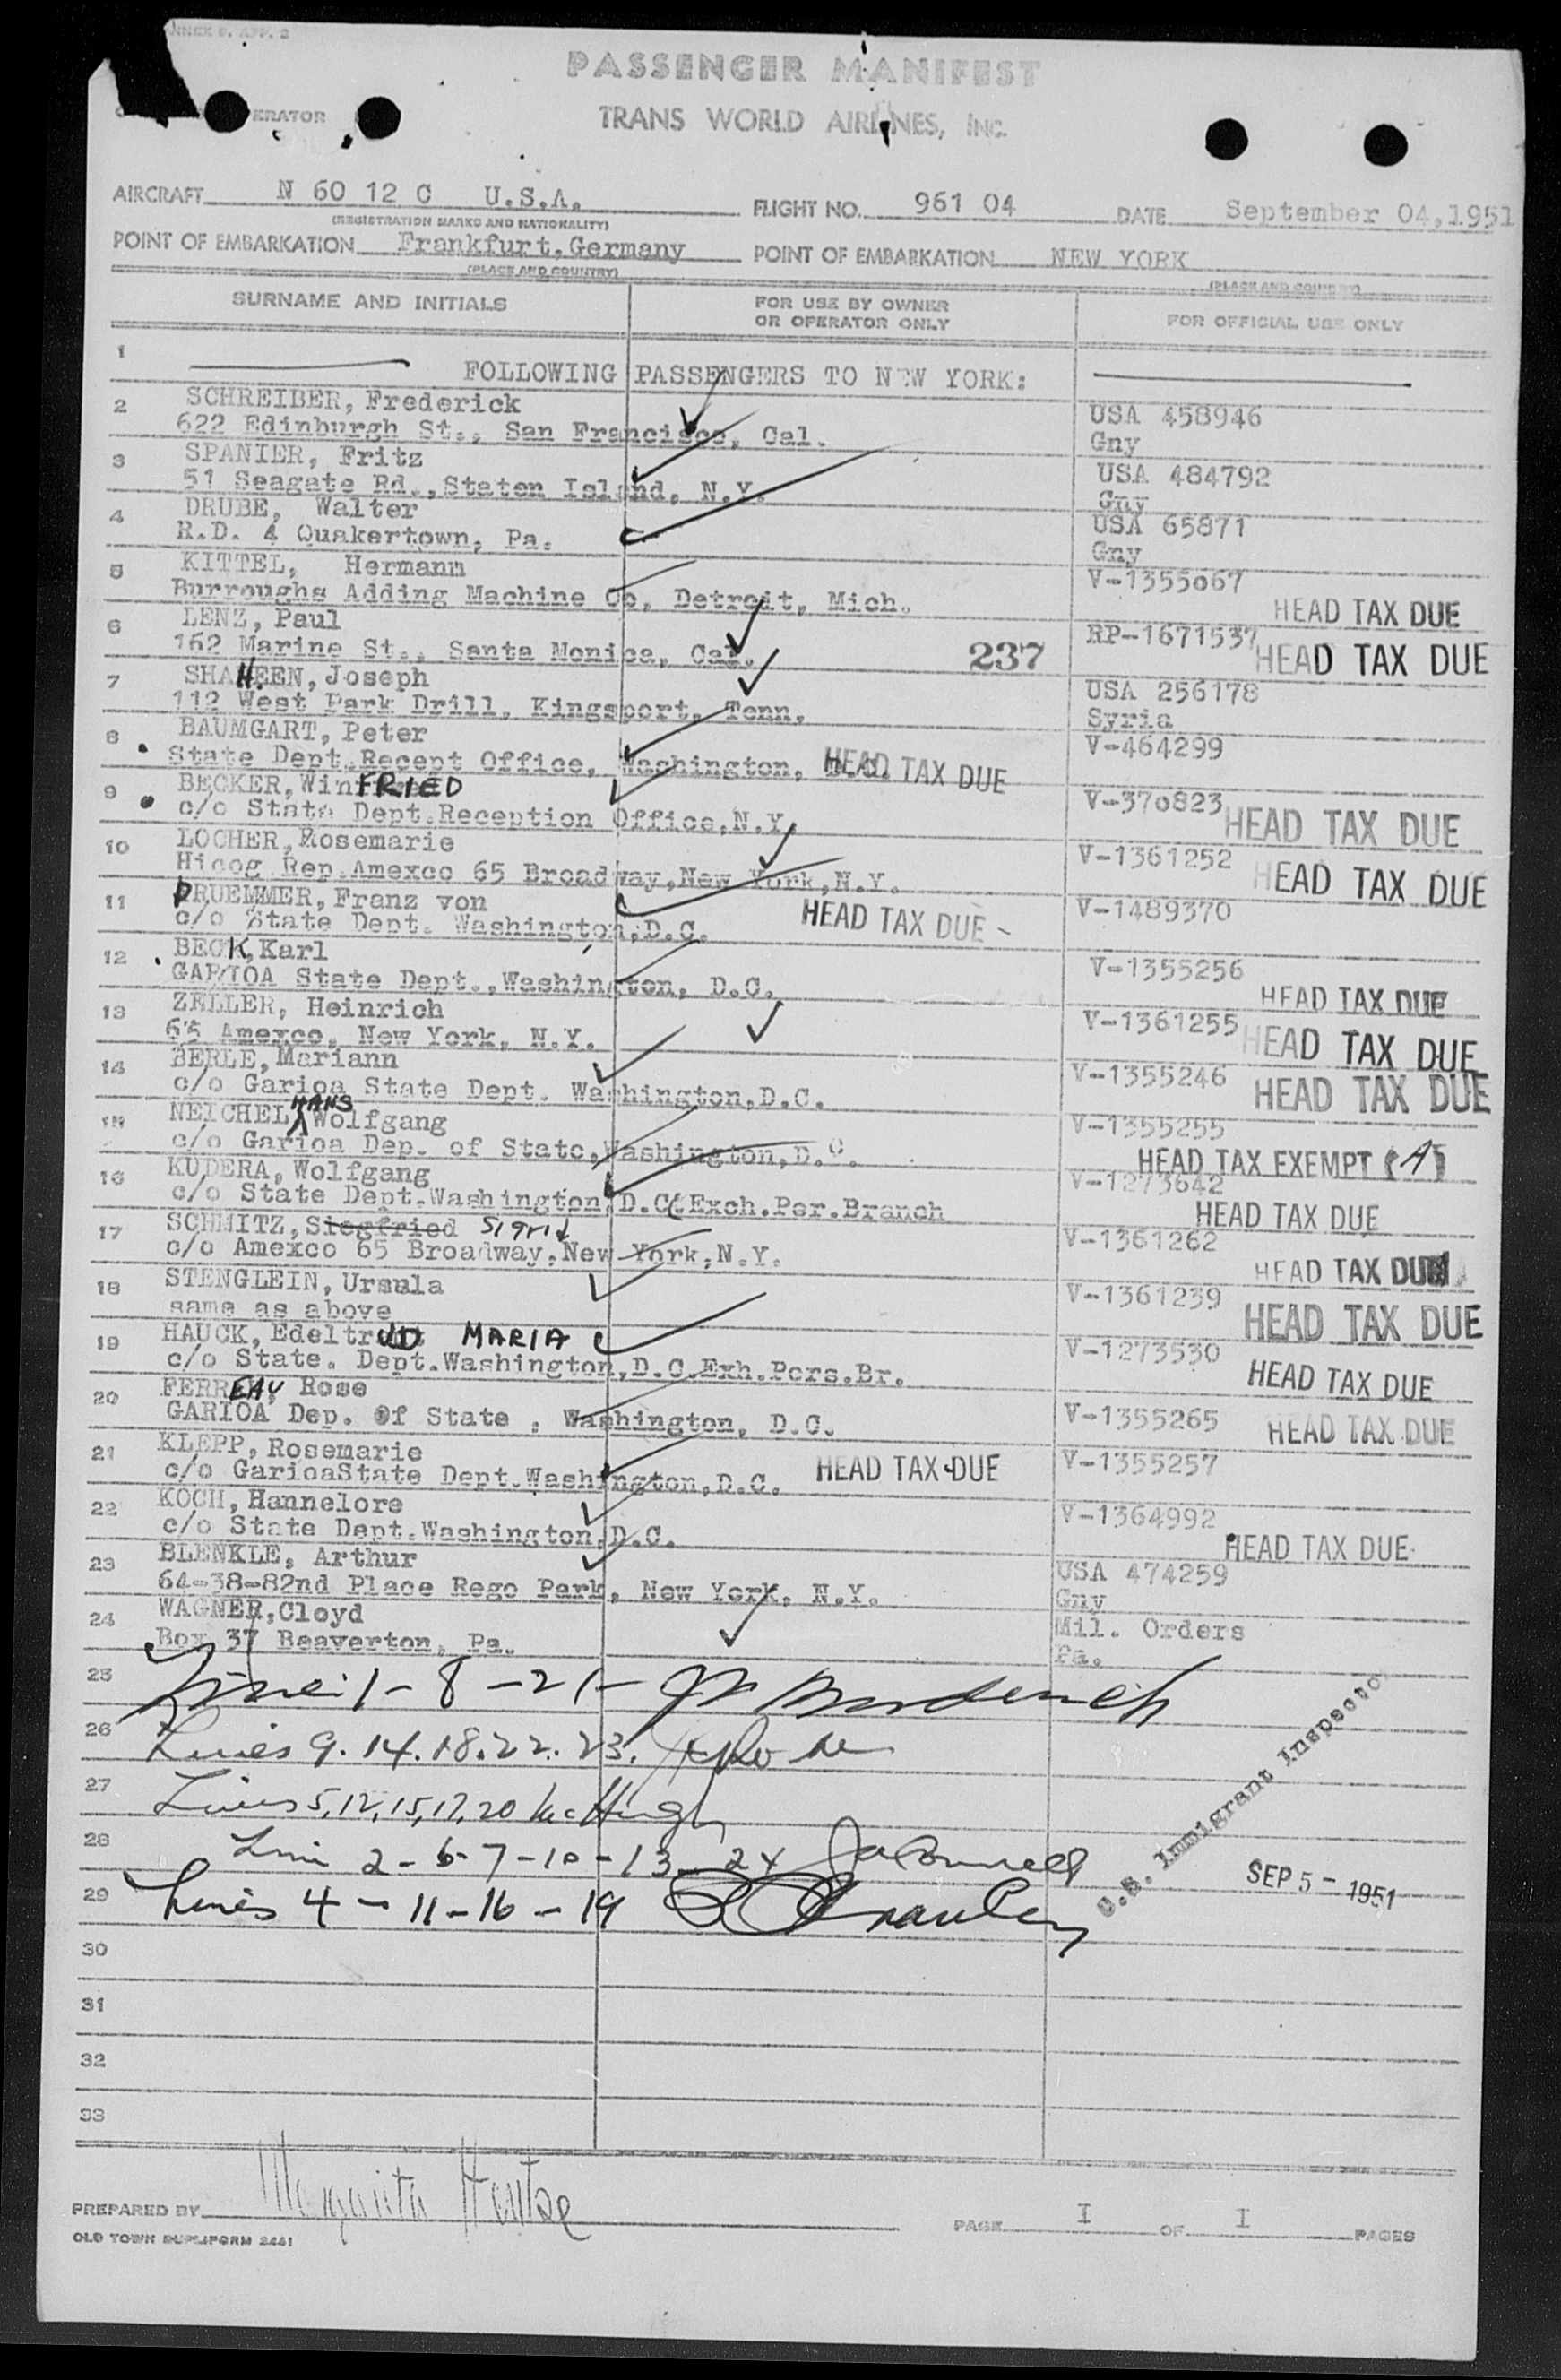 PASSENGER MANIFEST
ERATOR
TRANS WORLD AIRLINES, INC.
AIRCRAFT N 60 12 C U.S.A. FLIGHT NO. 961 04 DATE September 04,1951
(REGISTRATION MARKS AND NATIONALITY)
POINT OF EMBARKATION Frankfurt.Germany POINT OF EMBARKATION NEW YORK
(PLACE AND COUNTRY) (PLACE AND COUNTRY)
SURNAME AND INITIALS FOR USE BY OWNER OR OPERATOR ONLY FOR OFFICIAL USE ONLY
1 FOLLOWING PASSENGERS TO NEW YORK:
2 SCHREIBER, Frederick USA 458946
622 Edinburgh St., San Francisco, Cal. Gny
3 SPANIER, Fritz USA 484792
51 Seagate Rd.,Staten Island, N.Y. Gny
4 DRUBE, Walter USA 65871
R.D. 4 Quakertown, Pa. Gny
5 KITTEL, Hermann V-1355067
Burroughs Adding Machine Co, Detroit, Mich. HEAD TAX DUE
6 LENZ, Paul RP-1671537
162 Marine St., Santa Monica, Cal. 237 HEAD TAX DUE
7 SHAHEEN, Joseph USA 256178
112 West Park Drill, Kingsport, Tenn. Syria
8 BAUMGART, Peter V-464299
State Dept.Recept Office, Washington, D.C. HEAD TAX DUE
9 BECKER, WinFRIED V-370823
c/o State Dept.Reception Office,N.Y. HEAD TAX DUE
10 LOCHER, Rosemarie V-1361252
Hicog Rep.Amexco 65 Broadway,New York,N.Y. HEAD TAX DUE
11 DRUEMMER, Franz von V-1489370
c/o State Dept. Washington,D.C. HEAD TAX DUE
12 BECK,Karl V-1355256
GARIOA State Dept.,Washington, D.C. HEAD TAX DUE
13 ZELLER, Heinrich V-1361255
65 Amexco, New York, N.Y. HEAD TAX DUE
14 BERLE,Mariann V-1355246
c/o Garioa State Dept. Washington,D.C. HEAD TAX DUE
15 NEICHEL, HANS Wolfgang V-1355255
c/o Garioa Dep. of State,Washington,D.C. HEAD TAX EXEMPT (A)
16 KUDERA, Wolfgang V-1273642
c/o State Dept.Washington,D.C.Exch.Per.Branch HEAD TAX DUE
17 SCHMITZ,Siegfried Sigrid V-1361262
c/o Amexco 65 Broadway.New York,N.Y. HEAD TAX DUE
18 STENGLEIN, Ursula V-1361239
same as above HEAD TAX DUE
19 HAUCK, EdeltrUD MARIA V-1273530
c/o State. Dept.Washington,D.C.Exh.Pers.Br. HEAD TAX DUE
20 FERREAU, Rose V-1355265
GARIOA Dep. Of State , Washington, D.C. HEAD TAX DUE
21 KLEPP, Rosemarie V-1355257
c/o GarioaState Dept.Washington,D.C. HEAD TAX DUE
22 KOCH, Hannelore V-1364992
c/o State Dept.Washington,D.C. HEAD TAX DUE
23 BLENKLE, Arthur USA 474259
64-38-82nd Place Rego Park, New York, N.Y. Gny
24 WAGNER,Cloyd Mil. Orders
Box 37 Beaverton, Pa. Pa.
25 8-21
26 Lines 9.14.18.22.23.
27 Lines 5,12,15,17,20 McHugh
28 Line 2-6-7-10-13-24
29 Lines 4-11-16-19
U.S. Immigrant Inspector
SEP 5 - 1951
30
31
32
33
PREPARED BY Margarita PAGE I OF I PAGES
OLD TOWN DUPLIFORM 2441